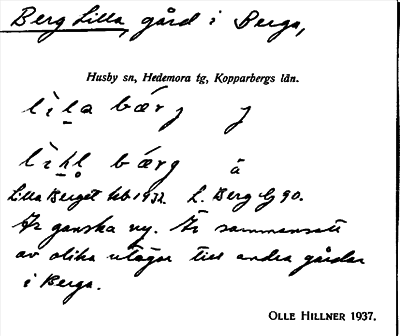 Berg Lilla, gård i Berga,
Husby sn, Hedemora tg, Kopparbergs län.
lìla bærj j
lìkl bærg å
Lilla Berget hb 1932. L. Berg Ljg 90.
Är ganska ny. Är sammansatt
av olika utägor till andra gårdar
i Berga.
OLLE HILLNER 1937.